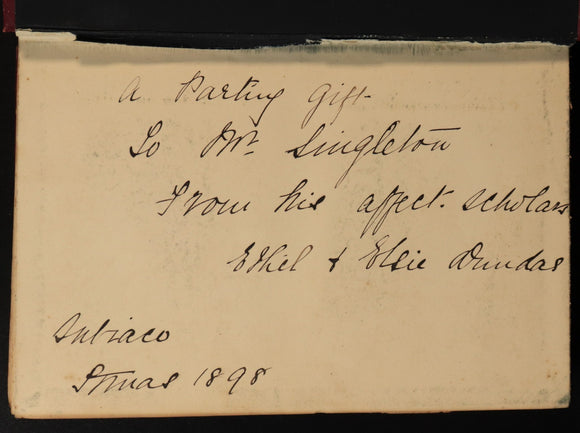 A Parting Gift
To Mr. Singleton
From his affect. scholars
Ethel & Elsie Dundas
Subiaco
Xmas 1898